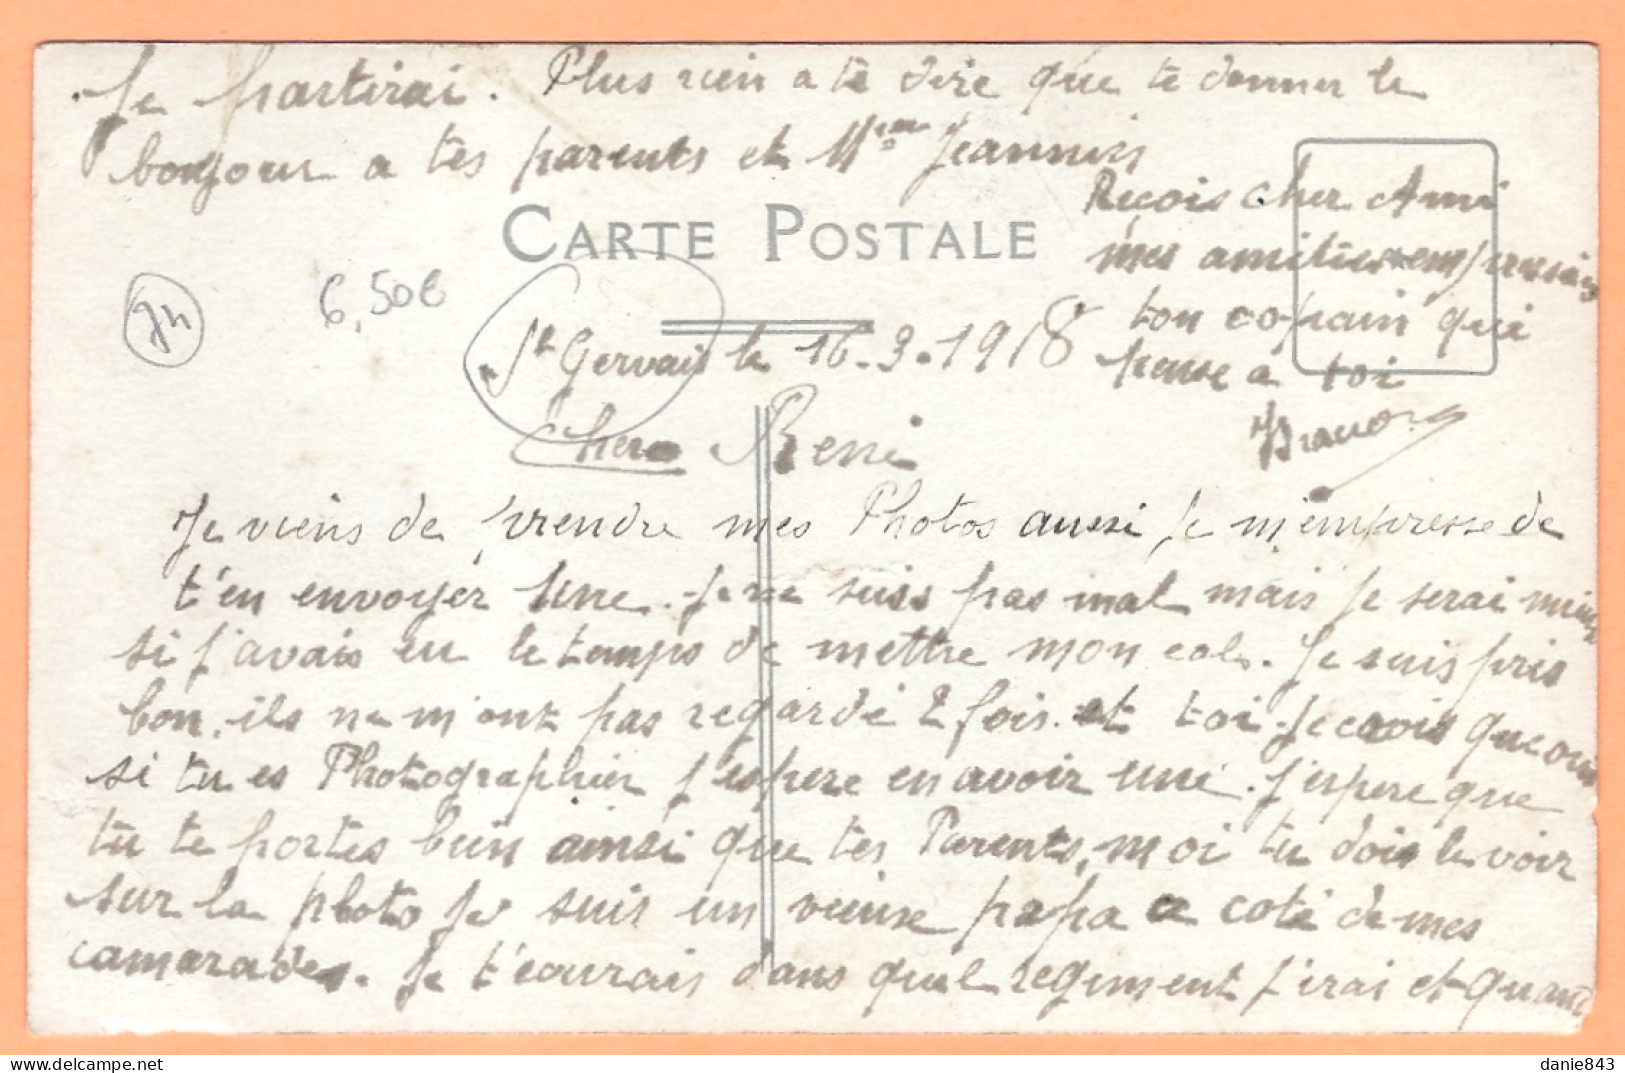 Je partirai. Plus rien a te dire que te donner le
bonjour a tes parents et Mme
CARTE POSTALE
Reçois cher Ami
mes amitiés
ton copain qui
pense a toi
6,50€
St Gervais le 16-3-1918
Cher René
Je viens de prendre mes Photos aussi Je m'empresse de
t'en envoyer une. Je ne suis pas mal mais Je serai mieux
si j'avais eu le temps de mettre mon col. Je suis pris
bon, ils ne m'ont pas regardé 2 fois et toi Je crois que oui
si tu es Photographier J'espere en avoir une. J'espere que
tu te portes bien ainsi que tes Parents, moi tu dois le voir
sur la photo Je suis un vieux papa a coté de mes
camarades. Je t'ecrirais dans quel regiment J'irai et quand
danie843